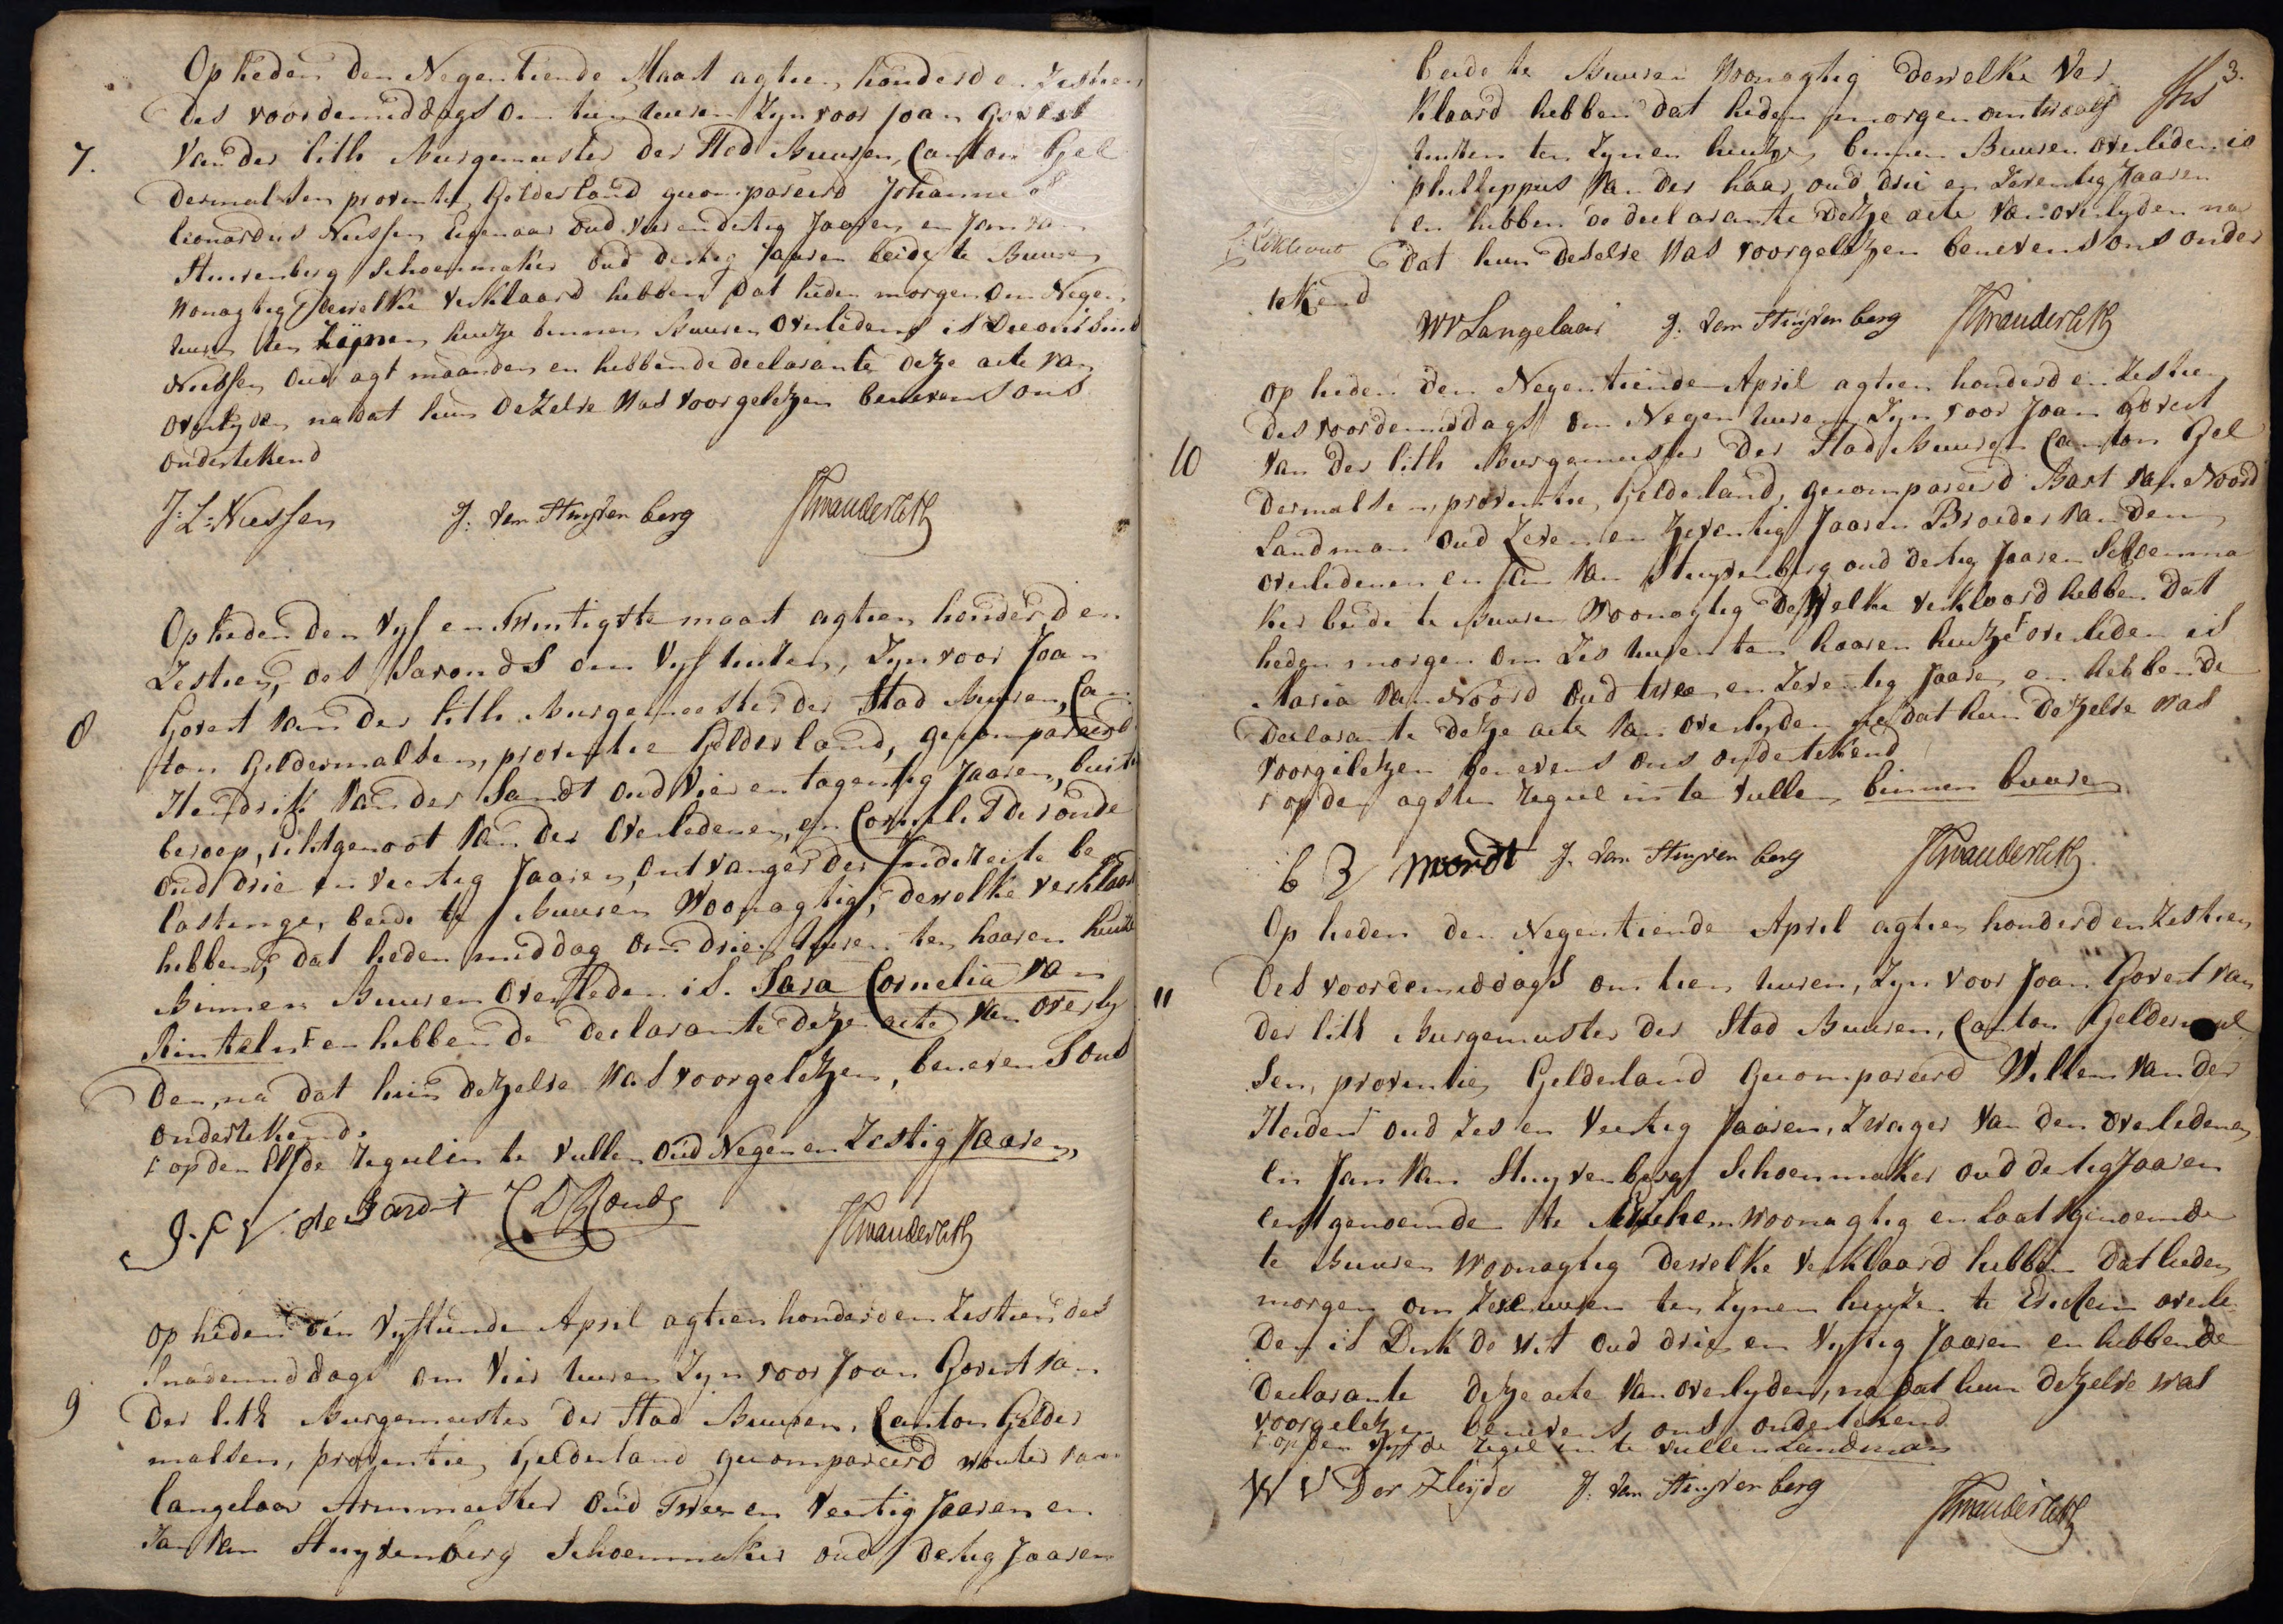 Op heden den Negentiende Maart agtien honderd en Zestien
des voordemiddags om tien uuren Zyn voor Joan Govert
7. Van der Lith Burgemeester der Stad Buuren, Canton Gel
dermalsen proventie Gelderland gecompareerd Johannes
Leonardus Niessen Eigenaar oud vier en dertig Jaaren en Jan van
Stuivenberg Schoenmaker oud dertig Jaaren beide te Buuren
Wonagtig Dewelke verklaard hebben Dat heden morgen om Negen
uuren ten Zijnen huize binnen Buuren Overleden is
Niessen Oud agt maanden en hebben de declarante deze acte van
Overlyden nadat hun deZelve Was VoorgeleZen benevens ons
Ondertekend
J: L: Niessen J: van Stuyvenberg JGvanderLith
Op heden den Vyf en Twintigste maart agtien honderd en
Zestien, des Savonds om Vyf uuren, Zyn voor Joan
8 Govert Van der Lith Burgemeester der Stad Buuren, Can
ton Geldermalsen, proventie Gelderland, gecompareerd
Hendrik Van der Sandt oud Vier en tagentig Jaaren, buiten
beroep, echtgenoot Van der Overledenen, en Cornelis de ronde
Oud drie en veertig Jaaren, Ontvanger der Indireiste be
lastinge, beide te Buuren Woonagtig, dewelke verklaard
hebben, dat heden middag om drie uuren ten haaren huize
Binnen Buuren Overleden is. Sara Cornelia van
Rinteln F en hebben de declarante deze acte van overly
den, na dat hun dezelve Was voorgelezen, benevens ons
ondertekend.
F op den Elfde regul in te vullen oud Negen en Zestig Jaaren,
C D Ronde JGvanderLith
op heden den Vyftiende April agtien honderd en Zestien des
Snademiddags om Vier uuren Zyn voor Joan Govert van
9 Der Lith Burgemeester der Stad Buuren, Canton Gelder
malsen, proventie Gelderland gecompareerd wouter van
langelaar Armmeester oud Twee en Veertig Jaaren en
Jan Van Stuyvenberg Schoenmaker oud dertig Jaaren
3.
beide te Buuren Woonagtig dewelke Ver
Klaard hebben dat heden morgen om twaalf
uuren ten Zynen huize binnen Buuren overleden is
phillippus Van der haar oud drie en Zeventig Jaaren
en hebben de declarante Deze acte Van overlyden na
dat hun deselve Was voorgelezen benevens ons onder
teKend
WVLangelaar J: van Stuyvenberg JGvanderLith
op heden den Negentiende April agtien honderd en Zestien
des voordemiddags om Negen uuren Zyn voor Joan govert
10 Van der Lith Burgemeester Der Stad Buuren Canton Gel
dermalsen, proventie, Gelderland, gecompareerd Bart van Noord
Landman Oud Zeven en Zeventig Jaaren Broeder van den
overledenen en Jan Van Stuyvenberg oud dertig Jaaren Schoenma
ker beide te Buuren Woonagtig Dewelke verklaard hebben dat
heden morgen om Zes uuren ten haaren huize F overleden is
Maria Van Noord Oud twee en Zeventig Jaaren en hebben de
Declarante Deze acte Van overlyden na dat hun dezelve was
voorgelezen benevens ons ondertekend
F op den agsten regul in te vullen binnen buuren
J. Van Stuyvenberg JGvanderLith
Op heden den Negentiende April agtien honderd en Zestien
Des voordemiddags om tien uuren, Zyn voor Joan Govert van
11 der Lith Burgemeester der Stad Buuren, Canton Geldermal
sen, proventie, Gelderland Gecompareerd Willem Van der
Heiden F oud Zes en Veertig Jaaren, Zwager Van den overledenen
en Jan Van Stuyvenberg Schoenmaker oud dertig Jaaren
eerstgenoemde te woonagtig en laatstgenoemde
te Buuren Woonagtig dewelke verklaard hebben Dat heden
morgen om uuren ten Zynen huyze te overle
den is Dirk de Wit oud drie en Vyftig Jaaren en hebben de
Declarante deze acte Van overlyden, na dat hun dezelve was
voorgelezen benevens ons ondertekend
F op den vyfde regel in te vullen Landman
W V Der Heijde J: van Stuyvenberg
JGvanderLith